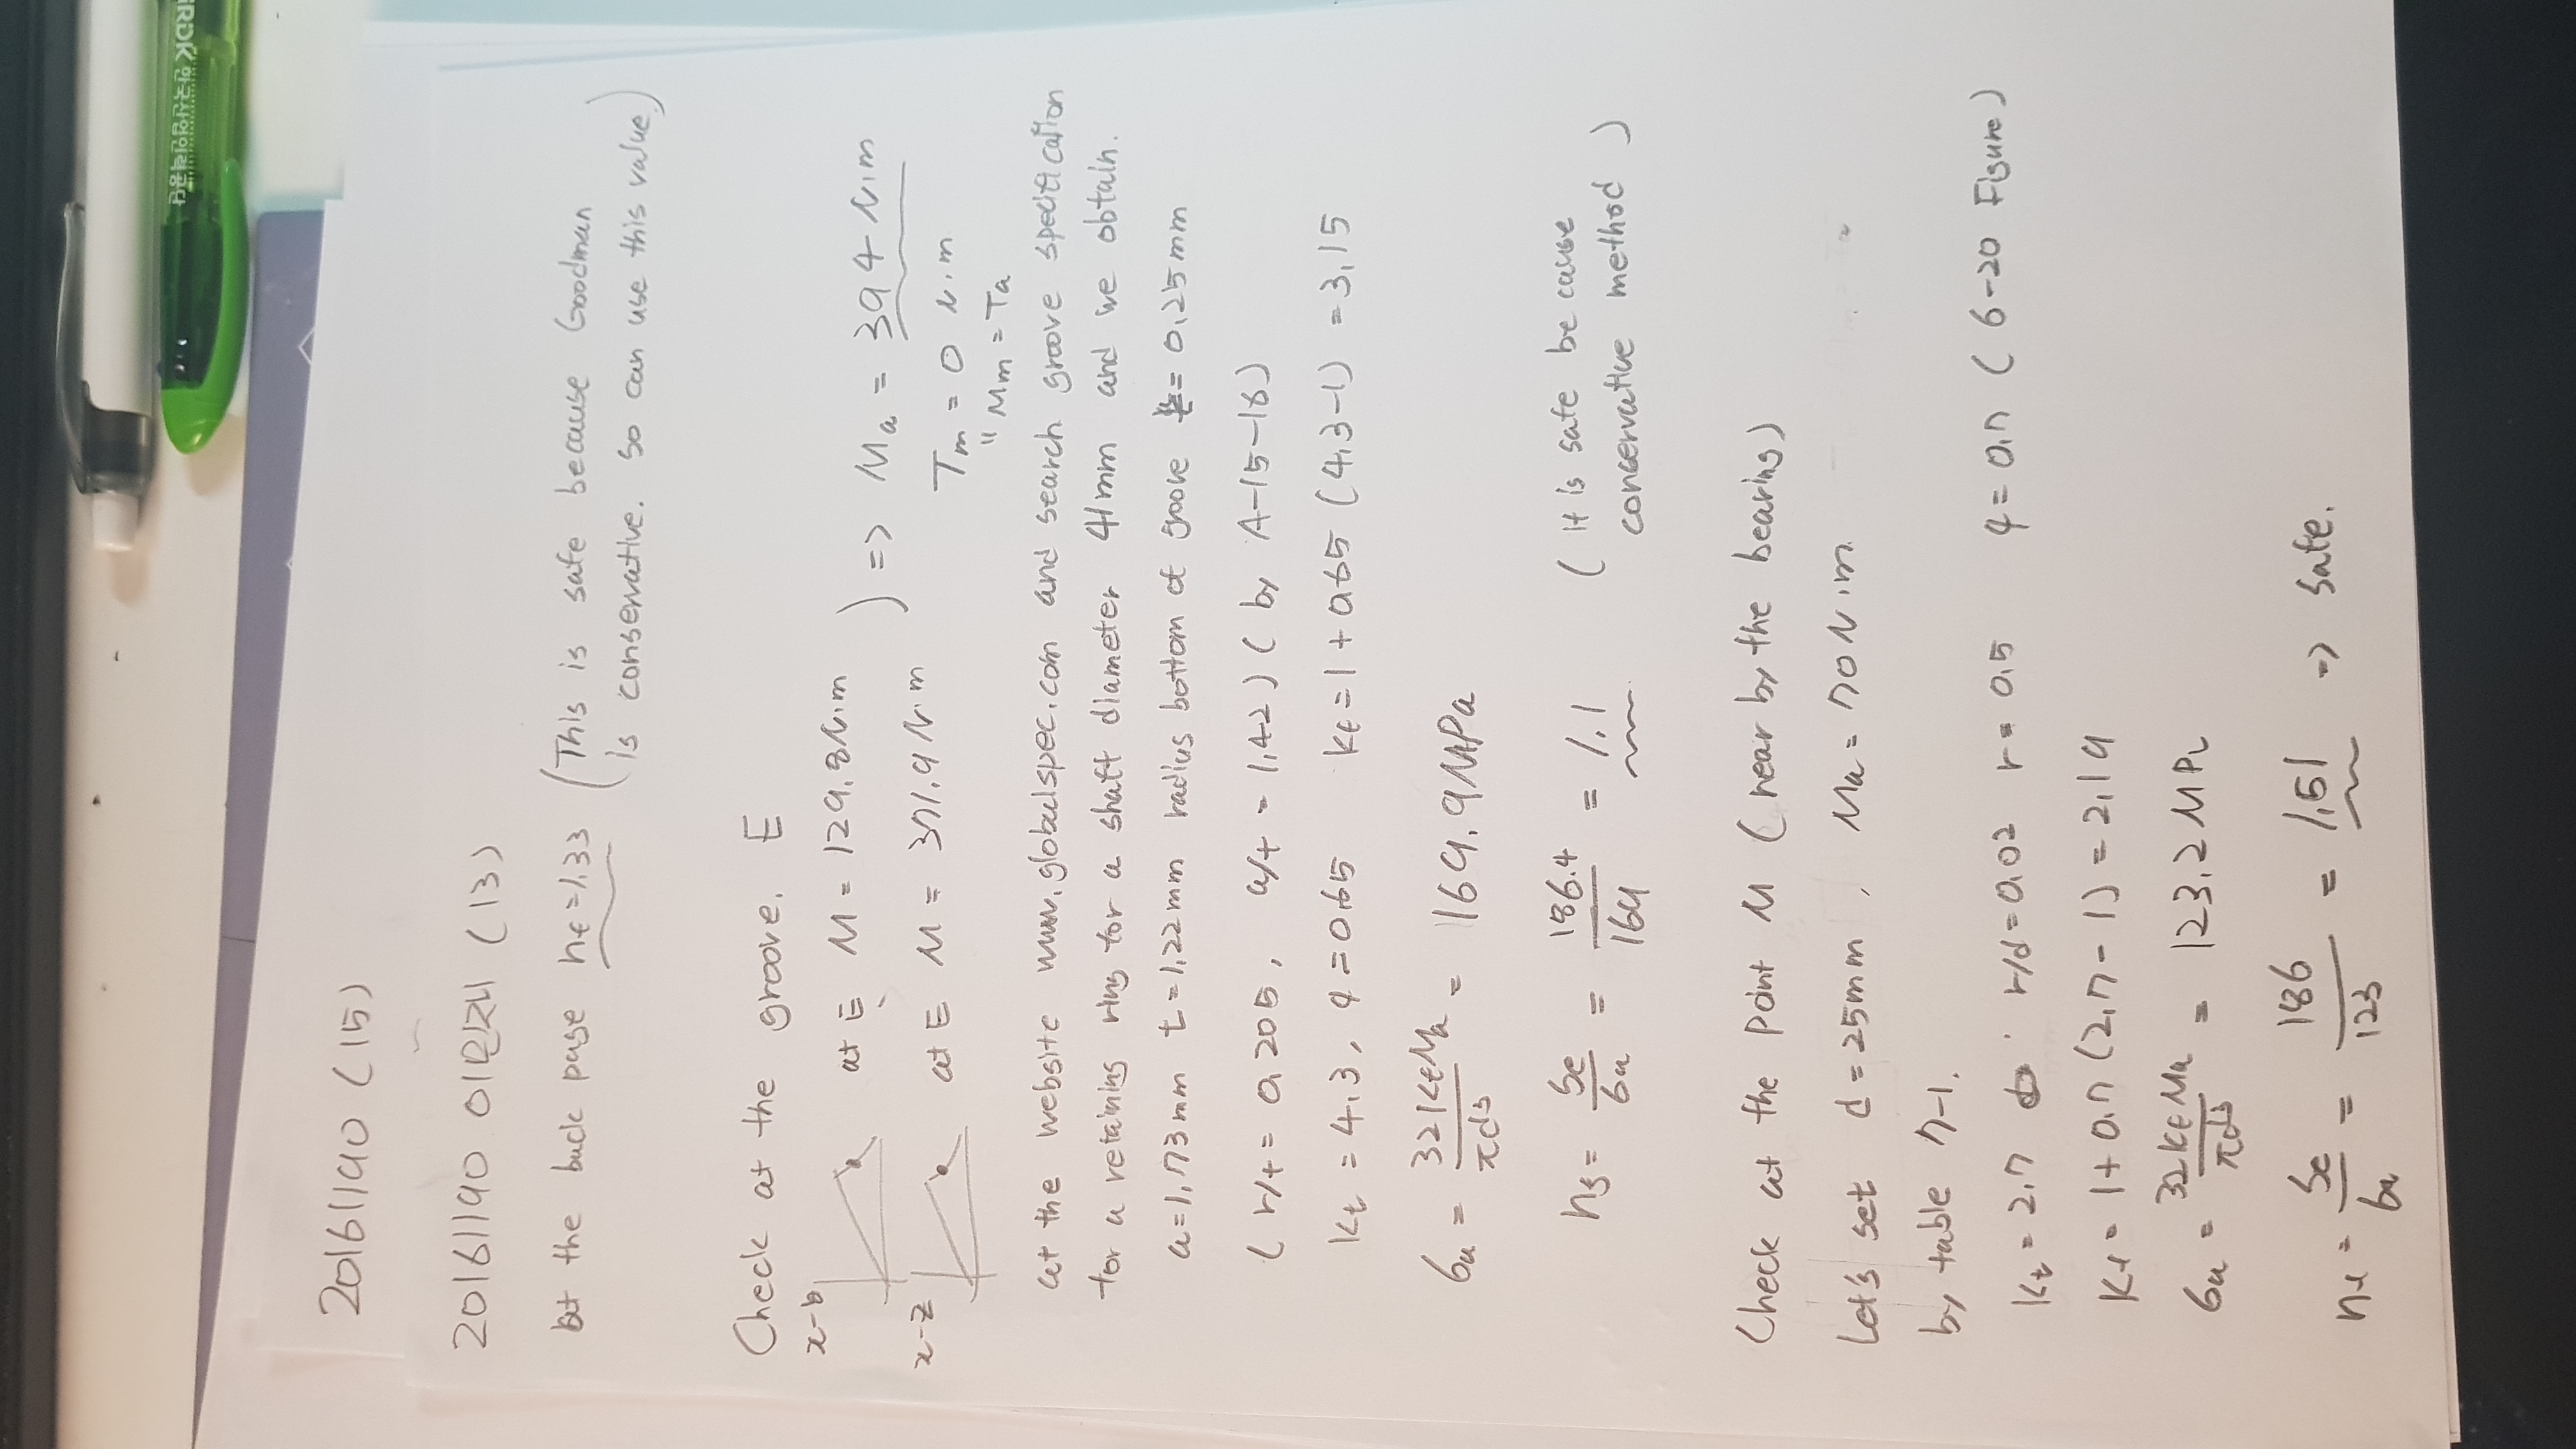 20161190 (15)
20161190 이민재 (13)
but the back page nf=1.33 (This is safe because Goodman
is conservative. so can use this value.)
Check at the groove. E
x-y at E M = 129.8N·m
x-z at E M = 371.9 N·m
) => Ma = 394 N·m
Tm = 0 N·m
" Mm = Ta
at the website www.globalspec.com and search groove specification
for a retaining ring for a shaft diameter 41mm and we obtain.
a=1.73mm t=1.22mm radius bottom of groove r= 0.25mm
( r/t = 0.205, a/t = 1.42 ) ( by A-15-16)
Kt = 4.3, q = 0.65 Kf = 1 + 0.65 (4.3-1) = 3.15
σa = 32KfMa/πd³ = 169.9MPa
nf = Se/σa = 186.4/169 = 1.1 ( it is safe be cause
conservative method )
Check at the point M ( near by the bearing)
Let's set d = 25mm , Ma = 70N·m
by table 7-1.
Kt = 2.7 r/d = 0.02 r = 0.5 q = 0.7 ( 6-20 Figure )
Kf = 1 + 0.7 (2.7 - 1) = 2.19
σa = 32KfMa/πd³ = 123.2 MPa
nf = Se/σa = 186/123 = 1.51 => safe.